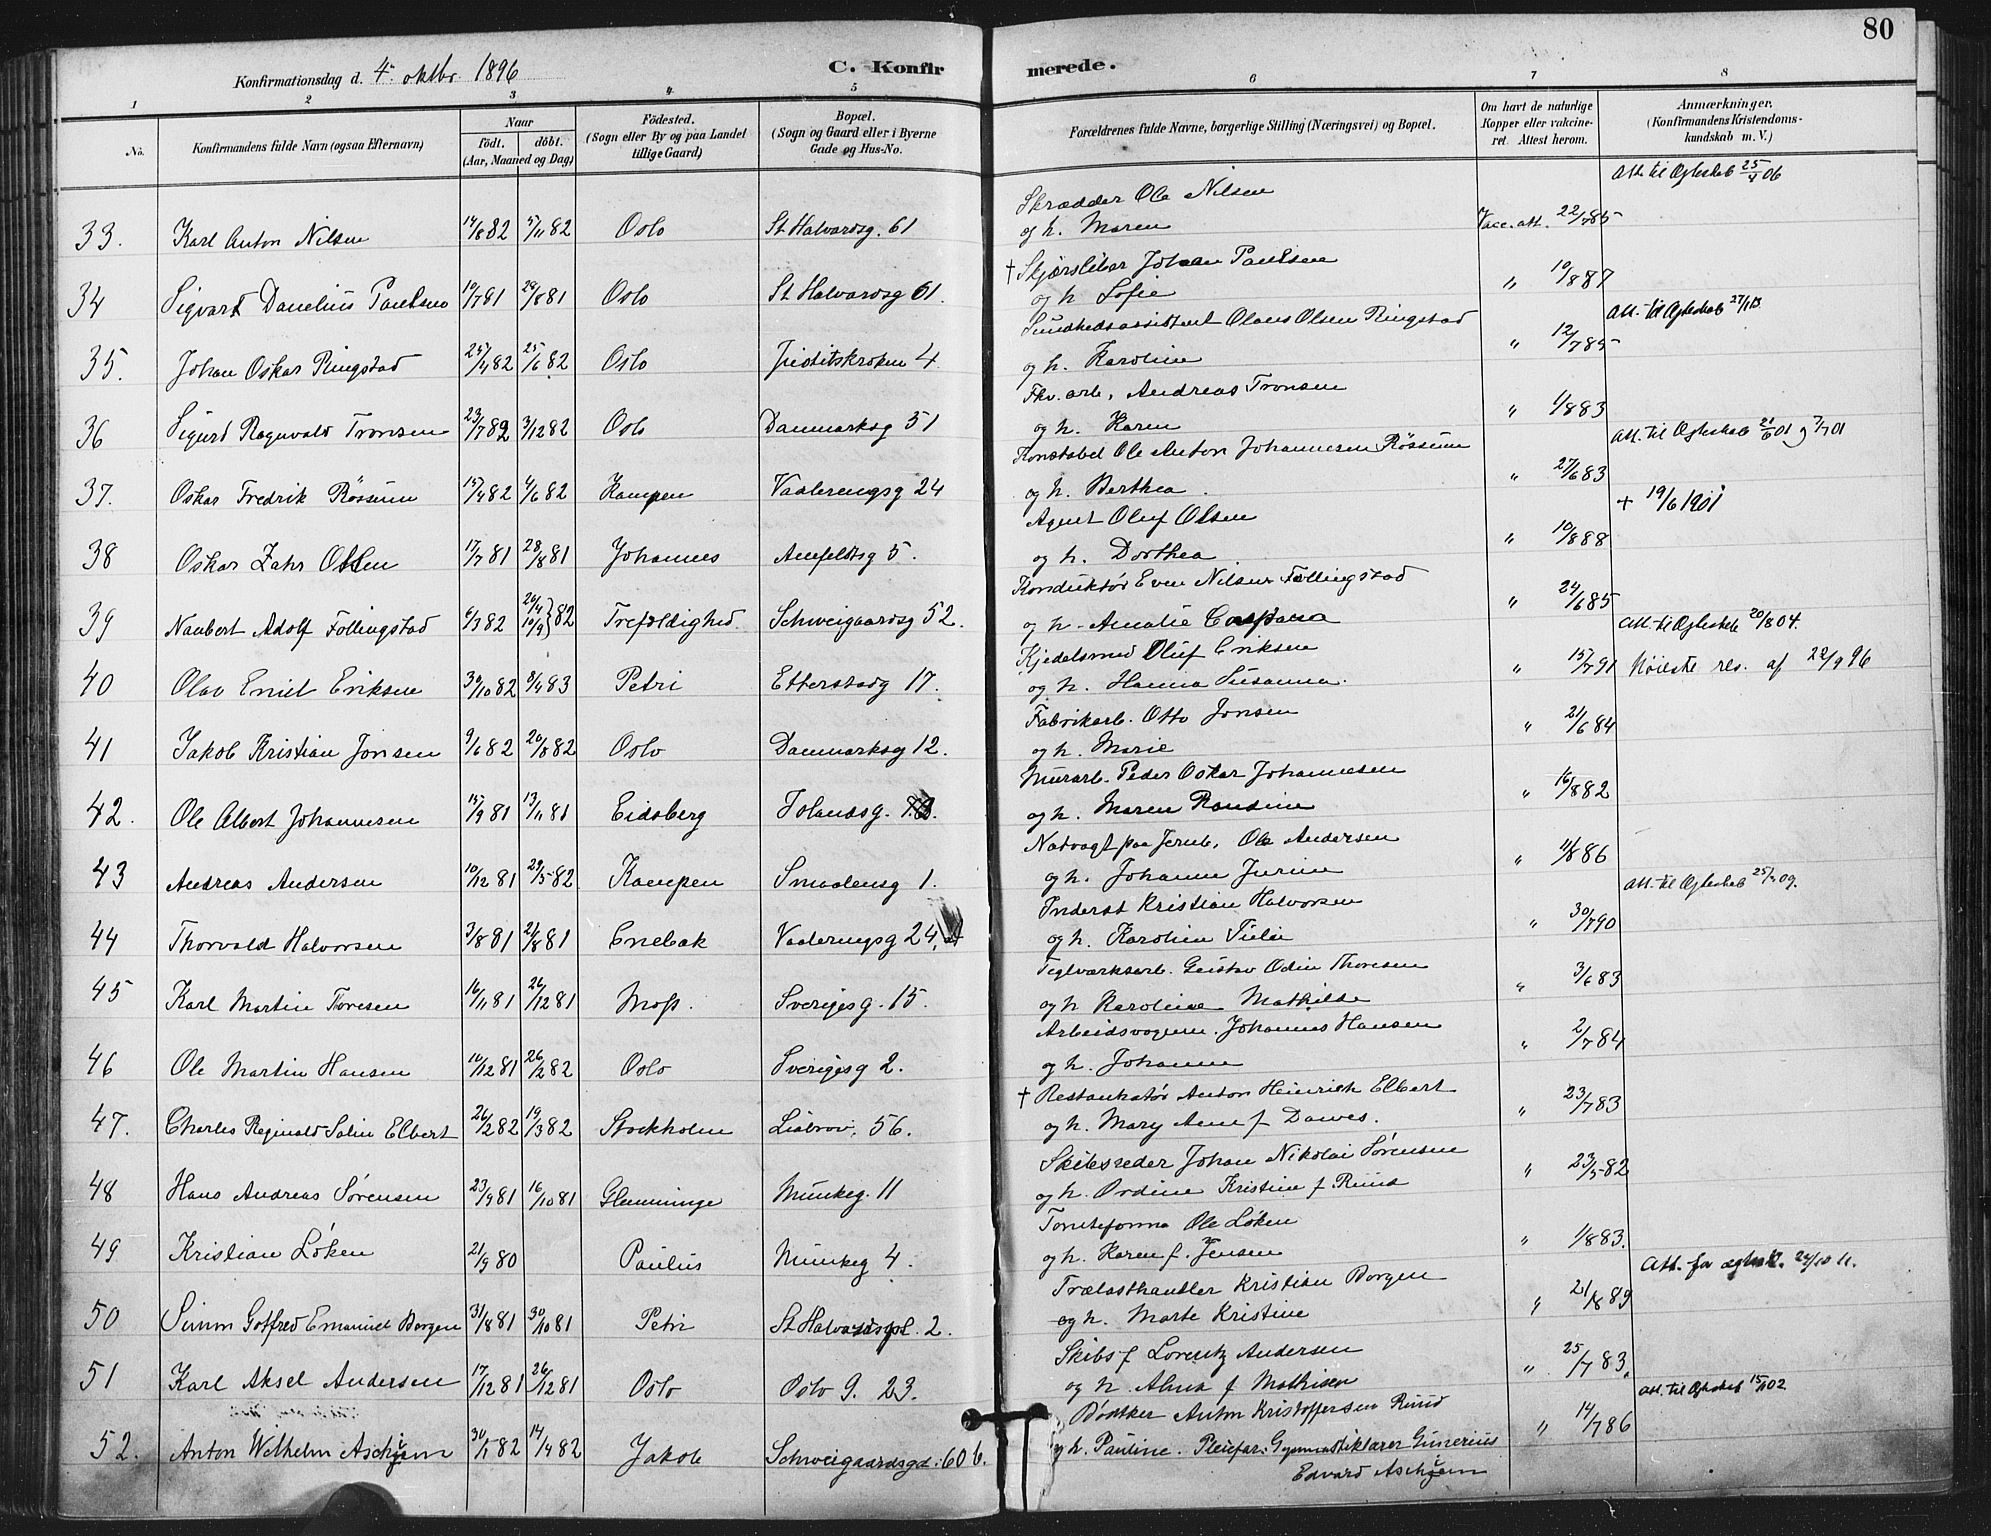 80
Konfirmationsdag d. 4. oktbr 1896
C. Konfirmerede.
1 2 3 4 5 6 7 8
No. Konfirmandens fulde Navn (ogsaa Efternavn) Naar födt. döbt. (Aar, Maaned og Dag) Födested. (Sogn eller By og paa Landet tillige Gaard) Bopæl. (Sogn og Gaard eller i Byerne Gade og Hus-No. Forældrenes fulde Navne, borgerlige Stilling (Næringsvei) og Bopæl. Om havt de naturlige Kopper eller vaccineret. Attest herom. Anmærkninger. (Konfirmandens Kristendomskundskab m. V.)
Skrædder Ole Nilsen Att. til Ægteskab 25/4 06
33. Karl Anton Nilsen 14/8 82 5/11 82 Oslo St Halvardsg. 61 og h. Maren Vacc. att. 22/7 85
† Skjærsliber Johan Paulsen
34 Sigvart Danelius Paulsen 10/7 81 28/8 81 Oslo St Halvardsg 61. og h Sofie " 10/8 87
Sundhedsassistent Olaus Olsen Ringstad Att. til Ægteskab 27/1 13
35. Johan Oskar Ringstad 25/4 82 25/6 82 Oslo 4 og h. Karoline " 12/7 85
Fbv. arb. Andreas Tronsen
36 Sigurd Ragnvald Tronsen 23/7 82 3/12 82 Oslo Danmarksg 31 og h. Karen " 1/8 83
Konstabel Ole Anton Johannesen Røssum Att. til Ægteskab 21/6 01 og 7/7 01
37. Oskar Fredrik Røssum 15/4 82 4/6 82 Kampen Vaalerengsg 24 og h. Berthea " 27/6 83
Agent Oluf Olsen + 19/6 1901
38 Oskar Zahr Olsen 17/7 81 28/8 81 Johannes Anfeldtsg 5. og h. Dorthea " 10/8 88
Konduktør Even Nilsen Føllingstad
39 Naubert Adolf Føllingstad 6/3 82 20/4 10/9 } 82 Trefoldighed Schweigaardsg 52. og h. Amalie " 24/6 85
Kjedelsmed Oluf Eriksen Att. til Ægteskab 20/8 04.
40 Olav Emil Eriksen 30/10 82 8/4 83 Petri Etterstadg 17. og h. Hanna Susanna. " 15/7 91 Høieste res. af 22/9 96
Fabrikarb. Otto Jonsen
41 Jakob Kristian Jonsen 9/6 82 20/8 82 Oslo Danmarksg 12. og h. Marie " 21/6 84
Murarb. Peder Oskar Johannesen
42. Ole Albert Johannesen 15/9 81 13/11 81 Eidsberg Jolandsg. og h. Maren Randine " 16/8 82
Natvagt paa Jernb. Ole Andersen
43 Andreas Andersen 10/12 81 29/5 82 Kampen Smaalensg 1. og h. Johanne Jurine " 11/8 86
Inderst Kristian Halvorsen Att. til Ægteskab 25/ 09.
44 Thorvald Halvorsen 3/8 81 21/8 81 Enebak Vaalerengsg 24. og h. Karoline " 30/7 90
Teglværksarb. Gustav Odin Thoresen
45 Karl Martin Toresen 16/11 81 26/12 81 Moss. Sverigesg. 15. og h Karoline Mathilde " 3/6 83
Arbeidsvogm. Johannes Hansen
46 Ole Martin Hansen 10/12 81 26/2 82 Oslo Sverigesg 2. og h. Johanne " 2/7 84
† Restauratør Anton Heinrich Elbert
47. Charles Reginald Elbert 26/2 82 19/3 82 Stockholm Liabrov. 56. og h. Mary Ann f Dawes. " 23/7 83
Skibsreder Johan Nikolai Sørensen
48 Hans Andreas Sørensen 23/9 81 16/10 81 Glemminge Munkeg. 11 og h. Ordine Kristine f Ruud " 23/5 82
Tomteformm Ole Løken
49 Kristian Løken 21/9 80 Paulus Munkeg 4. og h. Karen f. Jensen " 1/8 83.
Trælasthandler Kristian Borgen Att. for ægtesk. 24/10 11.
50 Simon Gotfred Emanuel Borgen 31/8 81 30/10 81 Petri St Halvardspl. 2. og h. Marte Kristine " 21/8 89
Skibsf Lorentz Andersen
51 Karl Aksel Andersen 17/12 81 26/12 81 Oslo Oslo g. 23. og h. Alma f Mathisen " 25/7 83.
Bødtker Anton Kristoffersen Ruud Att. til Ægteskab 15/1 02
52. Anton Wilhelm Aschjem 30/1 82 14/4 82 Jakob Schweigaardsgd. 60 b. og h. Pauline. Pleiefar: Gymnastiklærer Gunerius " 14/7 86
Edvard Aschjem